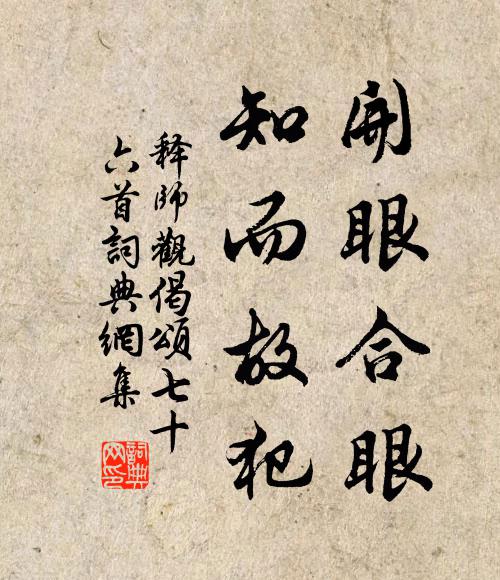 開眼合眼
知而故犯
释師觀偈頌七十
六首詞典網集
詞典
网印